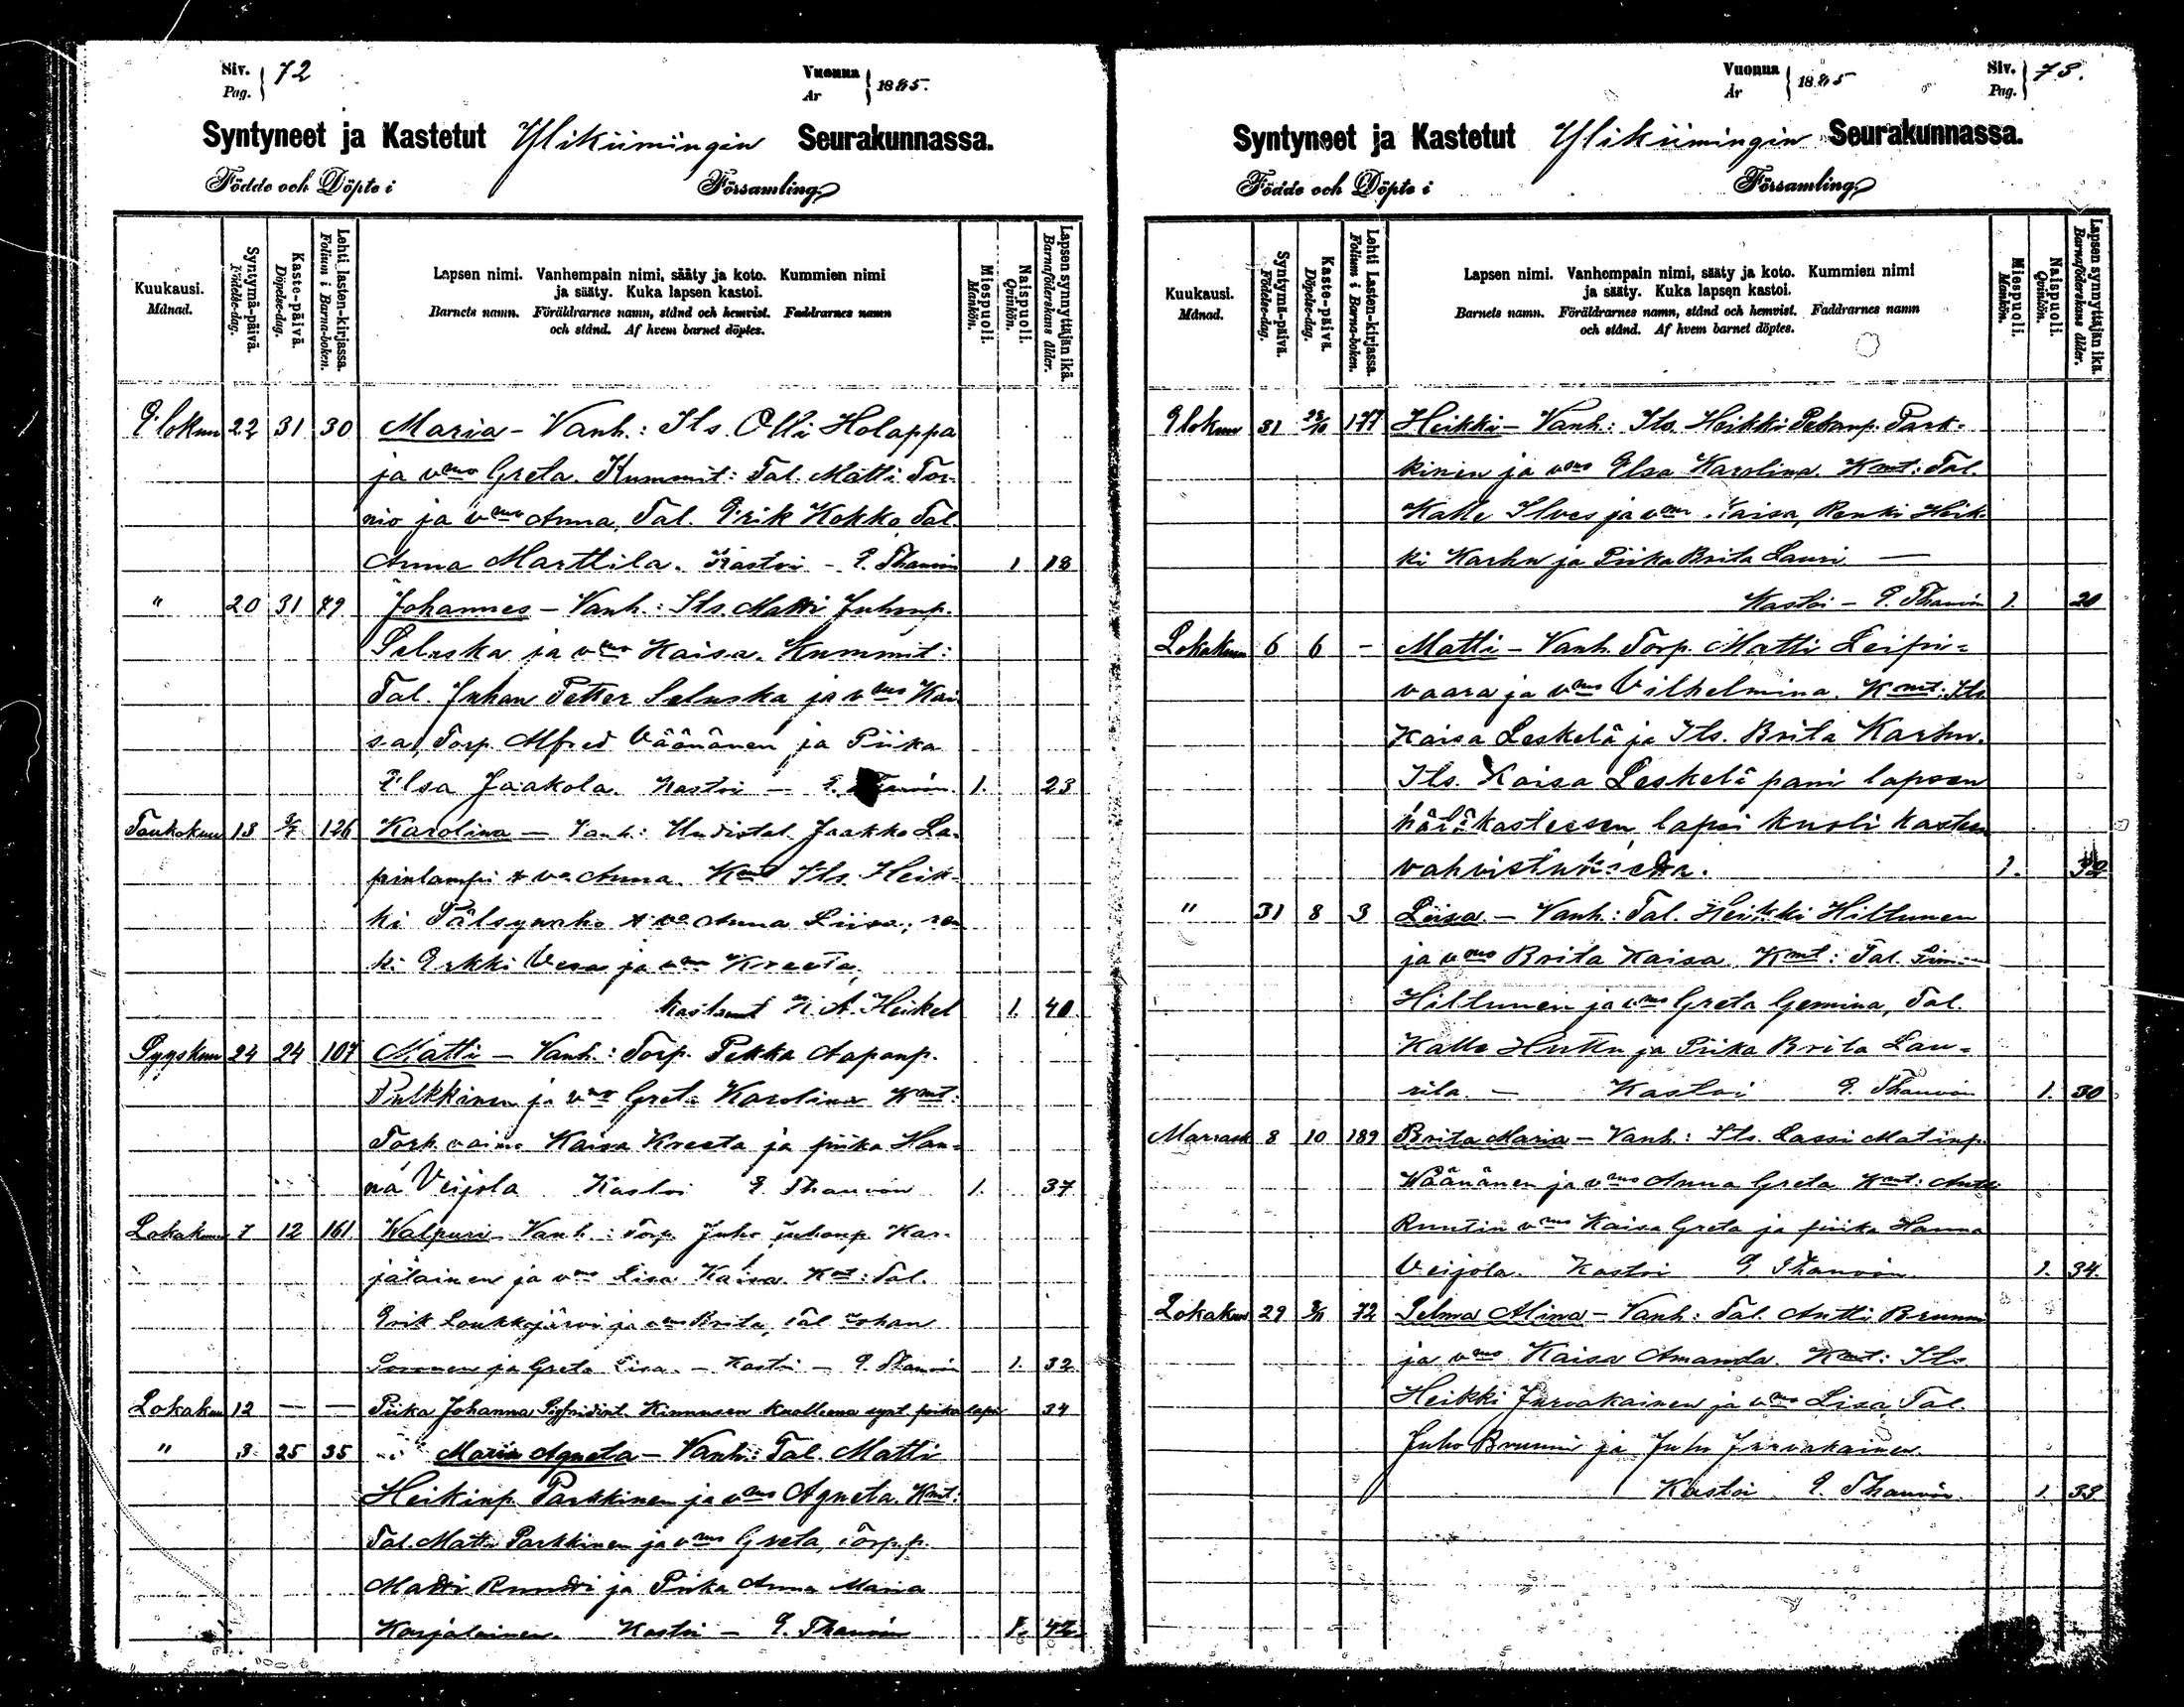 Siv. Pag. 72
Vuonna År 1885.
Syntyneet ja Kastetut Ylikiimingin Seurakunnassa.
Födde och Döpte i Församling
Kuukausi. Månad.
Syntymä-päivä. Födelse-dag.
Kaste-päivä. Döpelse-dag.
Lehti lasten-kirjassa. Folium i Barna-boken.
Lapsen nimi. Vanhempain nimi, sääty ja koto. Kummien nimi
ja sääty. Kuka lapsen kastoi.
Barnets namn. Föräldrarnes namn, stånd och hemvist. Faddrarnes namn
och stånd. Af hvem barnet döptes.
Miespuoli. Mankön.
Naispuoli. Qvinkön.
Lapsen synnyttäjän ikä. Barnaföderskans ålder.
Elokuu 22 31 30 Maria - Vanh.: Its. Olli Holappa
ja vmo Greta. Kummit: Tal. Matti Tor-
nio ja vmo Anna, Tal. Erik Kokko, Tal.
Anna Marttila. Kastoi - E. Thauvón 1 18
" 20 31 79 Johannes - Vanh.: Its. Matti Juhonp.
Seluska ja vmo Kaisa. Kummit:
Tal. Juhan Petter Seluska ja vmo Kai
sa, Torp. Alfred Väänänen ja Piika
Elsa Jaakola. Kastoi - E. Thauvón. 1. 23
Toukokuu 13 126 Karolina - Vanh: Uudistal. Jaakko La-
pinlampi & vo Anna. Kmt Its. Heik-
ki Pälsynaho & vo Anna Liisa; ren
ki Erkki Vesa ja vmo Kreeta,
Kastanut K. A. Heikel 1. 40
Syyskuu 24 24 107 Matti - Vanh.: Torp. Pekka Aaponp.
Pulkkinen ja vmo Greta Karolina Kmt:
Torp. vaimo Kaisa Kreeta ja piika Han-
na Veijola Kastoi E. Thauvón 1. 37
Lokakuu 7 12 161 Walpuri - Vanh.: Torp. Juho Juhonp. Kar-
jalainen ja vmo Lisa Kaisa. Kmt: Tal.
Erik Loukkojärvi ja vmo Brita, Tal Johan
Soronen ja Greta Lisa. - Kastoi - E. Thauvón 1. 32
Lokakuu 12 — — Piika Johanna Kinnusen kuolleena synt. piika lapsi 34
" 3 25 35 Maria Agneta - Vanh.: Tal. Matti
Heikinp. Parkkinen ja vmo Agneta. Kmt:
Tal. Matti Parkkinen ja vmo Greta, Torp.p.
Matti Ruutti ja Piika Anna Maria
Karjalainen. Kastoi - E. Thauvón 1. 42
Vuonna År 1885
Siv. Pag. 73.
Syntyneet ja Kastetut Ylikiimingin Seurakunnassa.
Födde och Döpte i Församling
Kuukausi. Månad.
Syntymä-päivä. Födelse-dag.
Kaste-päivä. Döpelse-dag.
Lehti Lasten-kirjassa. Folium i Barna-boken.
Lapsen nimi. Vanhempain nimi, sääty ja koto. Kummien nimi
ja sääty. Kuka lapsen kastoi.
Barnets namn. Föräldrarnes namn, stånd och hemvist. Faddrarnes namn
och stånd. Af hvem barnet döptes.
Miespuoli. Mankön.
Naispuoli. Qvinkön.
Lapsen synnyttäjän ikä. Barnaföderskans ålder.
Elokuu 31 177 Heikki - Vanh: Its. Heikki Pekanp. Park-
kinen ja vmo Elsa Karolina. Kmt: Tal.
Kalle Ilves ja vmo Kaisa, Renki Heik-
ki Karhu ja Piika Brita Lauri —
Kastoi - E. Thauvón 1. 20
Lokakuu 6 6 - Matti - Vanh. Torp. Matti Leipi-
vaara ja vmo Vilhelmina. Kmt: Its
Kaisa Leskelä ja Its. Brita Karhu.
Its. Kaisa Leskelä pani lapsen
hätäkasteesen, lapsi kuoli kasteen
vahvistuksetta. 1. 32
" 31 8 3 Liisa. - Vanh.: Tal. Heikki Hiltunen
ja vmo Brita Kaisa. Kmt: Tal.
Hiltunen ja vmo Greta Gemina, Tal.
Kalle Huttu ja Piika Brita Lau-
rila. - Kastoi E. Thauvón 1. 30
Marrask 8 10 189 Brita Maria - Vanh: Its. Lassi Matinp.
Wäänänen ja vmo Anna Greta Kmt: Antti
Ruutin vmo Kaisa Greta ja piika Hanna
Veijola. Kastoi E. Thauvón. 1. 34.
Lokakuu 29 72 Selma Alina - Vanh: Tal. Antti Brunni
ja vmo Kaisa Amanda. Kmt: Its
Heikki Jurvakainen ja vmo Lisa, Tal.
Juho Brunni ja Juho Jurvakainen.
Kastoi E. Thauvón. 1. 33